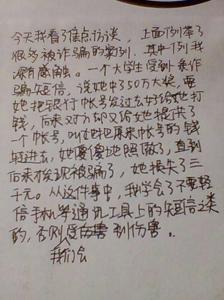 今天我看了焦点访谈，上面列举了
很多被诈骗的案例，其中一例我
深有感触。一个大学生受到某诈
骗短信，说她中了50万大奖，要
她把银行帐号发过去好给她打
钱，后来对方却又给她提供了
一个帐号，叫她把原来帐号的钱
转进去，她傻傻地照做了，直到
后来才发现被骗了，她损失了三
千元。从这件事中，我学会了不要轻
信手机等通讯工具上的短信之类
的，否则会伤害受到伤害。
我们会